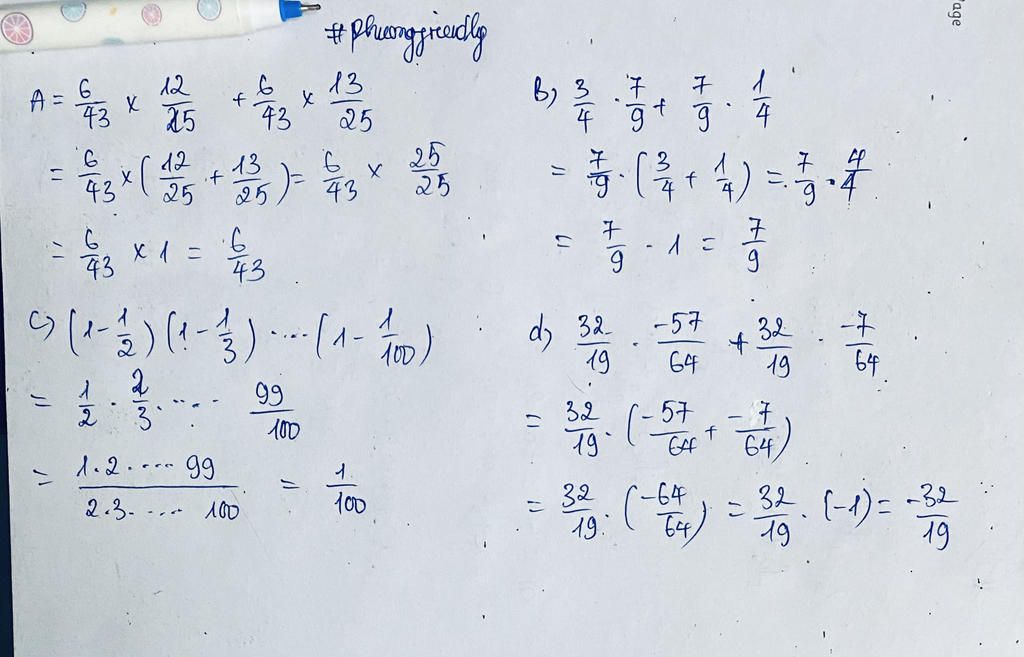 #phuonggriendly
age
A = 6/43 × 12/25 + 6/43 × 13/25
= 6/43 × (12/25 + 13/25) = 6/43 × 25/25
= 6/43 × 1 = 6/43
B) 3/4 . 7/9 + 7/9 . 1/4
= 7/9 . (3/4 + 1/4) = 7/9 . 4/4
= 7/9 . 1 = 7/9
C) (1 - 1/2) (1 - 1/3) .... (1 - 1/100)
= 1/2 . 2/3 . .... 99/100
= 1.2. .... 99 / 2.3. .... 100 = 1/100
d) 32/19 . -57/64 + 32/19 . -7/64
= 32/19 . (-57/64 + -7/64)
= 32/19 . (-64/64) = 32/19 . (-1) = -32/19